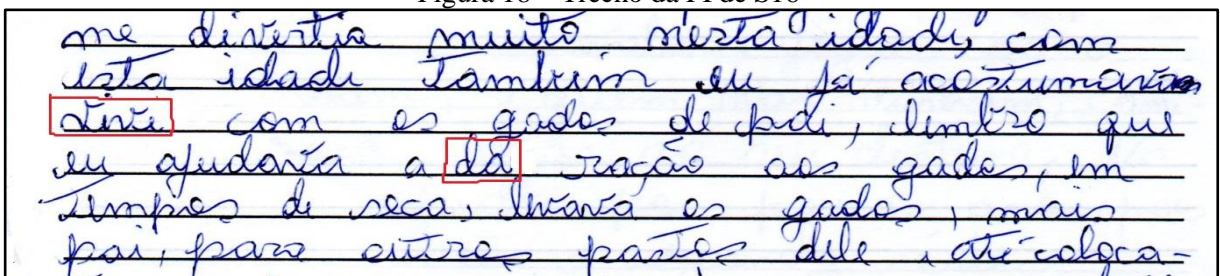 Figura 16 – Trecho da PI de S16
me divertia muito nesta idade, com
esta idade também eu já acostumava
vive com os gados de pai, lembro que
eu ajudava a da ração aos gados, em
tempos de seca, levava os gados, mais
pai, para outros pastos dele, até coloca-